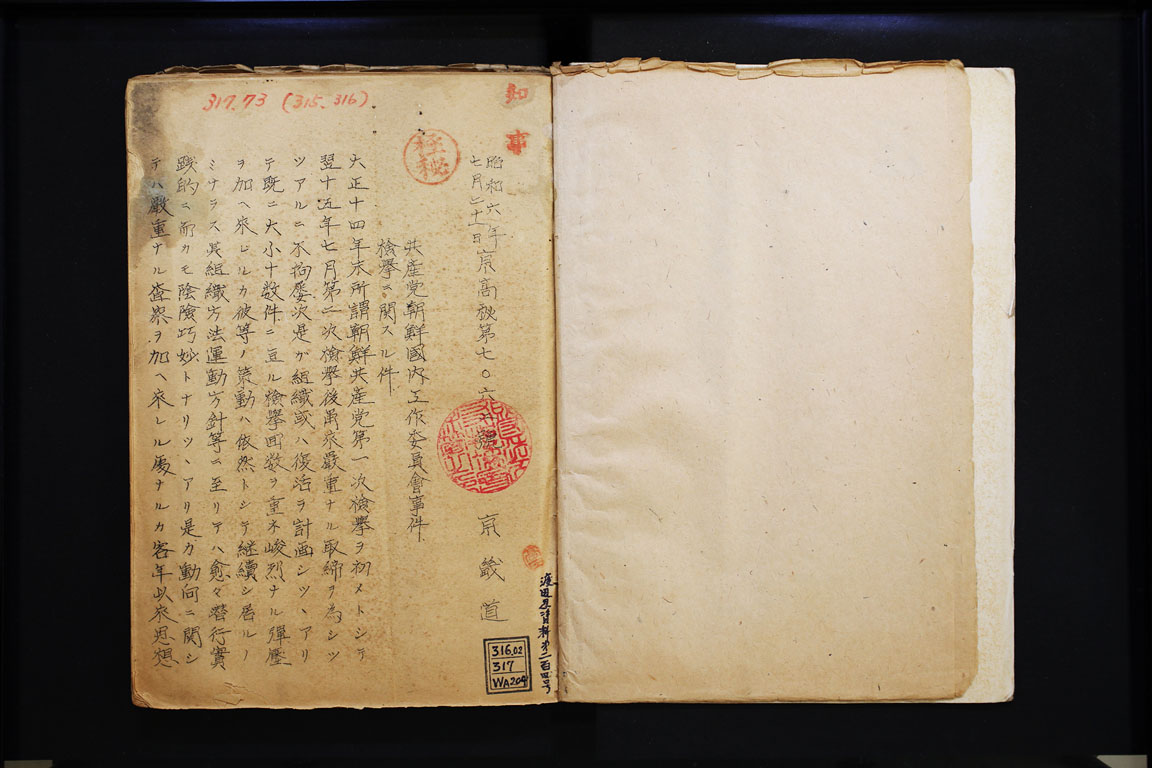 317.73 (315.316)
知事
極秘
昭和六年
七月二十一日
京高秘第七〇六七號
京畿道
共産党朝鮮國內工作委員會事件
檢擧ニ関スル件
大正十四年末所謂朝鮮共産党第一次檢擧ヲ初メトシテ
翌十五年七月第二次檢擧後甬来嚴重ナル取締ヲ為シツ
ツアルニ不拘屡次是ガ組織或ハ復活ヲ計画シツヽアリ
テ既ニ大小十数件ニ亘ル檢擧回数ヲ重ネ峻烈ナル彈壓
ヲ加ヘ来レルカ彼等ノ策動ハ依然トシテ継續シ居ルノ
ミナラス其組織方法運動方針等ニ至リテハ愈々着行實
践的ニ而カモ陰險巧妙トナリツヽアリ是カ動向ニ関シ
テハ嚴重ナル査察ヲ加ヘ来レル處ナルカ客年以来思想
渡辺 資料第二百四号
316.02
317
WA204